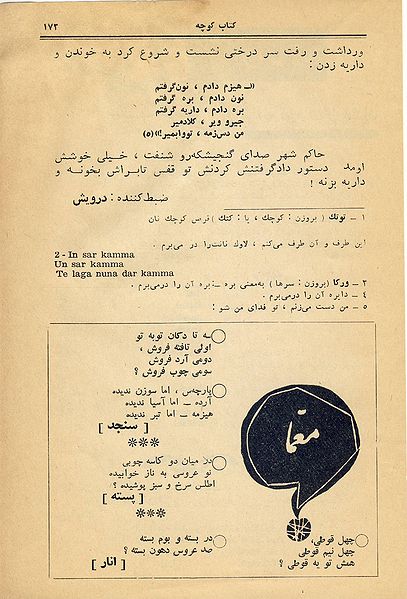 کتاب کوچه
۱۷۳
ورداشت و رفت سر درختی نشست و شروع کرد به خوندن و
داریه زدن :
«ـ هیزم دادم ، نون‌گرفتم
نون دادم ، بره گرفتم
بره دادم ، داریه گرفتم
جیرو ویر ، کلادمیر
من دس‌زمه ، تووابمیر!»(۵)
حاکم شهر صدای گنجیشکه‌رو شنفت ، خیلی خوشش
اومد دستور دادگرفتنش کردنش تو قفس تابراش بخونه و
داریه بزنه !
ضبط‌کننده : درویش
۱ ـ توتك (بروزن : کوچك ، یا : کتك) قرص کوچك نان
این طرف و آن طرف می‌کنم ، لاوك نانت‌را در می‌برم .
2 - In sar kamma
Un sar kamma
Te laga nuna dar kamma
۳ ـ ورکا (بروزن : سرها) به‌معنی بره ـ بره آن را درمی‌برم .
۴ ـ دایره آن را درمی‌برم .
۵ ـ من دست می‌زنم ، تو فدای من شو :
معمّا
سه تا دکان توبه تو
اولی تافته فروش ،
دومی آرد فروش ،
سومی چوب فروش ؟
پارچه‌س ، اما سوزن ندیده
آرده ـ اما آسیا ندیده
هیزمه ـ اما تبر ندیده
[ سنجد ]
***
در میان دو کاسه چوبی
نو عروسی به ناز خوابیده
اطلس سرخ و سبز پوشیده ؟
[ پسته ]
***
در بسته و بوم بسته
صد عروس دهون بسته ؟
[ انار ]
چهل قوطی،
چهل نیم قوطی
همش تو یه قوطی ؟